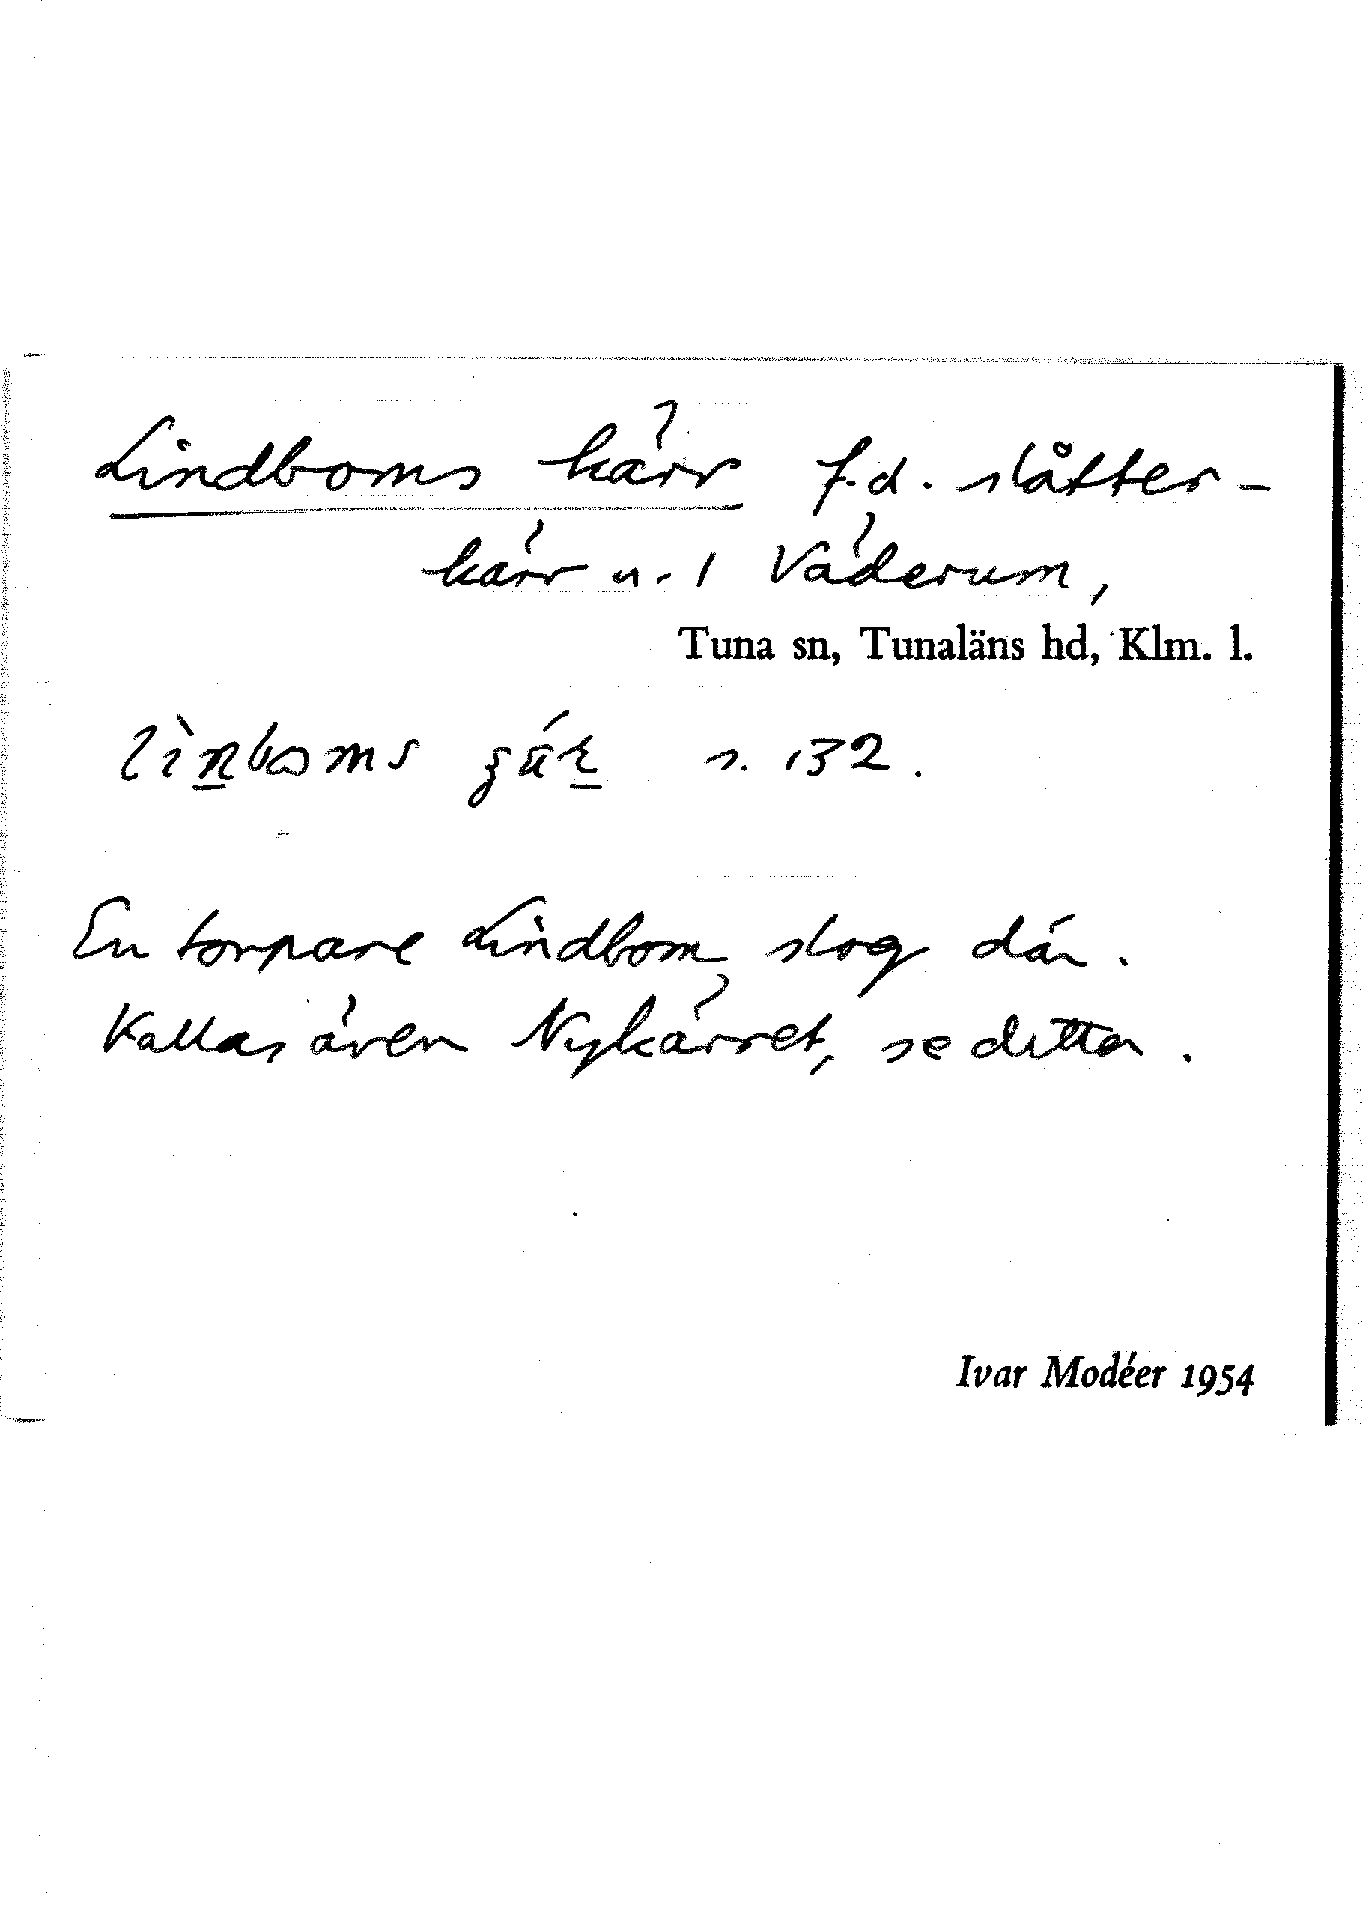 Lindboms kärr f.d. slåtter-
kärr u. 1 Väderum,
Tuna sn, Tunaläns hd, Klm. l.
s. 132.
En torpare Lindbom slog där.
Kallas även Nykärret, se detta.
Ivar Modéer 1954